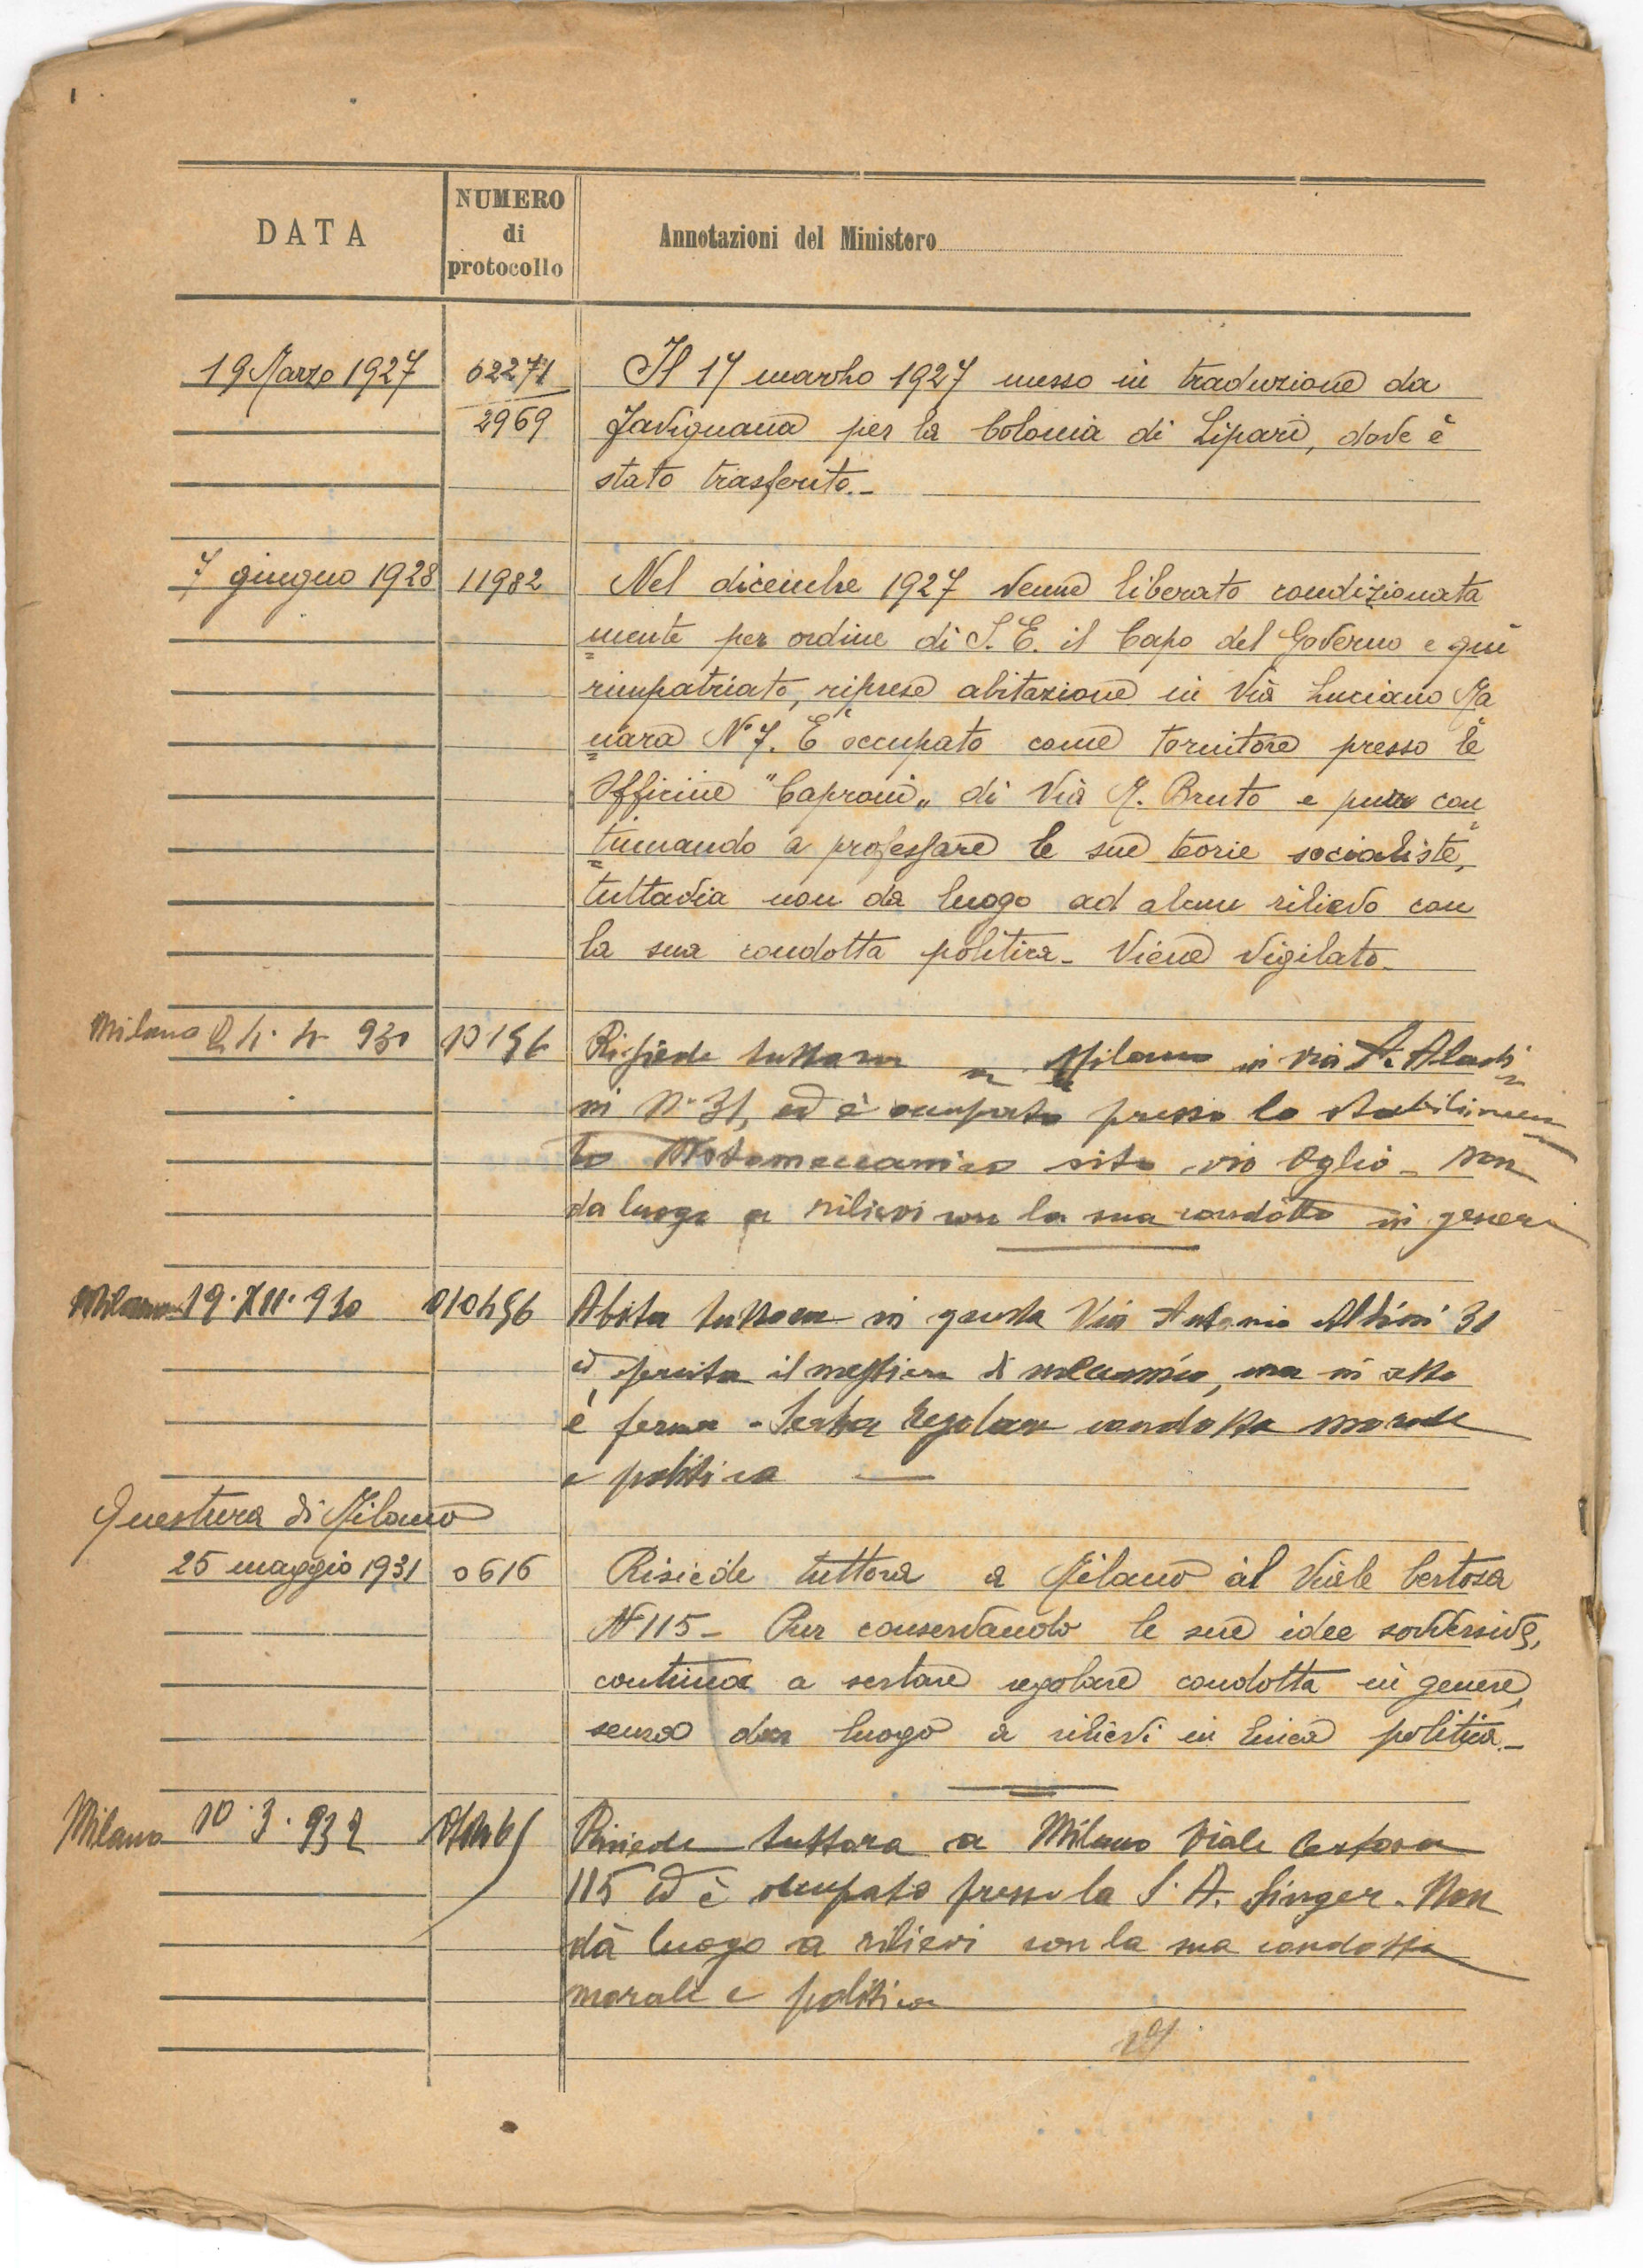 DATA
NUMERO
di
protocollo
Annotazioni del Ministero
19 Marzo 1927 02271 Il 17 marzo 1927 messo in traduzione da
2969 Favignana per la Colonia di Lipari, dove è
stato trasferito.-
7 giugno 1928 11982 Nel dicembre 1927 venne liberato condizionata
mente per ordine di S. E. il Capo del Governo e qui
rimpatriato, riprese abitazione in Via Luciano Ma
nara N° 7. È occupato come tornitore presso le
Officine "Caproni" di Via M. Bruto e pur con
tinuando a professare le sue teorie socialiste,
tuttavia non da luogo ad alcun rilievo con
la sua condotta politica - Viene vigilato -
Milano 24. 4. 930 Risiede tuttora a Milano in via A. Aldi
ni N° 31, ed è occupato presso lo stabilimen
to Motomeccanica sito via Oglio - Non
da luogo a rilievi con la sua condotta in genere
Milano 19. XII. 930 010456 Abita tuttora in questa Via Antonio Aldini 31
ed esercita il mestiere di meccanico, ma in atto
è fermo - Serba regolare condotta morale
e politica
Questura di Milano
25 maggio 1931 0616 Risiede tuttora a Milano al Viale Certosa
N° 115 - Pur conservando le sue idee sovversive,
continua a serbare regolare condotta in genere,
senza dar luogo a rilievi in linea politica -
Milano 10. 3. 932 Risiede tuttora a Milano Viale Certosa
115 ed è occupato presso la S. A. Singer. Non
dà luogo a rilievi con la sua condotta
morale e politica